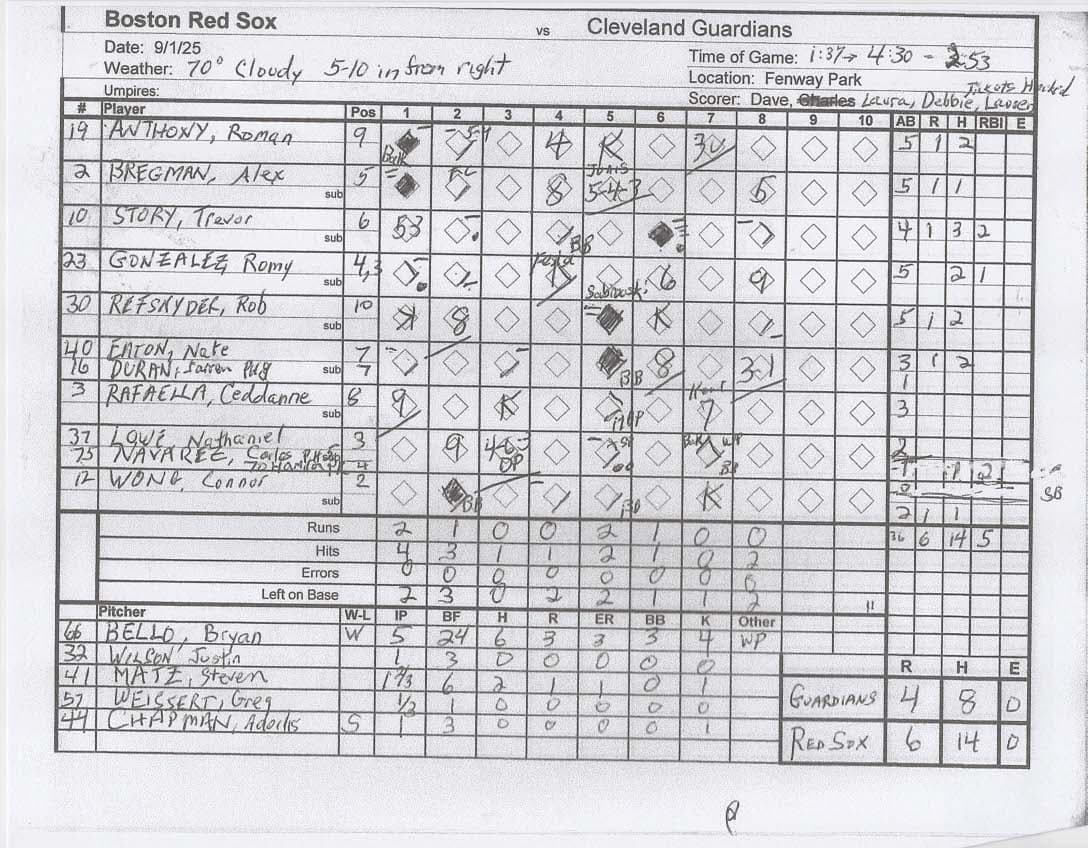 Boston Red Sox vs Cleveland Guardians
Date: 9/1/25
Time of Game: 1:37 → 4:30 - 2:53
Weather: 70° Cloudy 5-10 in from right
Location: Fenway Park
Umpires:
Scorer: Dave, Charles Laura, Debbie, Lauren
# Player Pos 1 2 3 4 5 6 7 8 9 10 AB R H RBI E
19 ANTHONY, Roman 9 Balk 4 K 3U 5 1 2
2 BREGMAN, Alex 5 8 5-4-3 5 5 1 1
sub
10 STORY, Trevor 6 53 BB 7 4 1 3 2
sub
23 GONZALEZ, Romy 4,3 K 6 9 5 2 1
sub
30 REFSNYDER, Rob 10 K 8 K 5 1 2
sub
40 EATON, Nate 7 BB 8 3-1 3 1 2
16 DURAN, Jarren PH8 sub 7 1
3 RAFAELLA, Ceddanne 8 9 K 7 3
sub
37 LOWE, Nathaniel 3 9 DP BB WP 2
75 NAVAREZ, Carlos 1 2
70 Hamilton 4 0
12 WONG, Connor 2 BB K 2 1 1
sub
SB
Runs 2 1 0 0 2 1 0 0 36 6 14 5
Hits 4 3 1 1 2 1 0 2
Errors 0 0 0 0 0 0 0 0
Left on Base 2 3 0 2 2 1 1 2 11
Pitcher W-L IP BF H R ER BB K Other
66 BELLO, Bryan W 5 24 6 3 3 3 4 WP
32 WILSON, Justin 1 3 0 0 0 0 0
41 MATZ, Steven 1 2/3 6 2 1 1 0 1
57 WEISSERT, Greg 1/3 1 0 0 0 0 0
44 CHAPMAN, Adorlis S 1 3 0 0 0 0 1
R H E
GUARDIANS 4 8 0
RED SOX 6 14 0